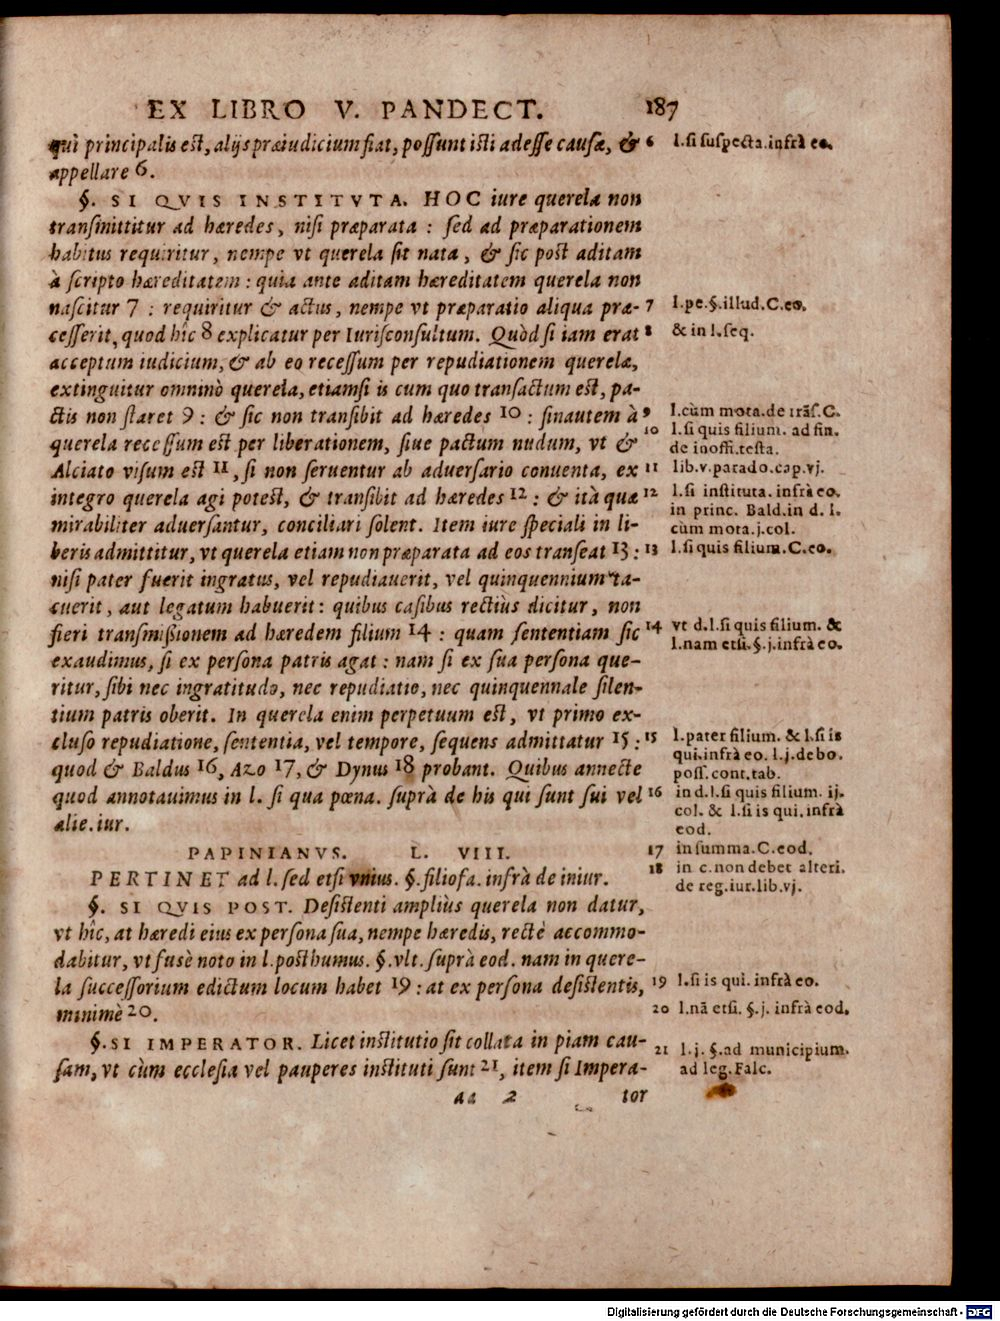 EX LIBRO V. PANDECT. 187
quì principalis eſt, alijs præiudicium fiat, poſſunt iſti adeſſe cauſæ, &
appellare 6.
§. SI QVIS INSTITVTA. HOC iure querela non
tranſmittitur ad hæredes, niſi præparata : ſed ad præparationem
habitus requiritur, nempe vt querela ſit nata, & ſic poſt aditam
à ſcripto hæreditatem : quia ante aditam hæreditatem querela non
naſcitur 7 : requiritur & actus, nempe vt præparatio aliqua præ-
ceſſerit, quod hîc 8 explicatur per Iuriſconſultum. Quòd ſi iam erat
acceptum iudicium, & ab eo receſſum per repudiationem querelæ,
extinguitur omninò querela, etiamſi is cum quo tranſactum eſt, pa-
ctis non ſtaret 9 : & ſic non tranſibit ad hæredes 10 : ſinautem à
querela receſſum eſt per liberationem, ſiue pactum nudum, vt &
Alciato viſum eſt 11, ſi non ſeruentur ab aduerſario conuenta, ex
integro querela agi poteſt, & tranſibit ad hæredes 12 : & ità quæ
mirabiliter aduerſantur, conciliari ſolent. Item iure ſpeciali in li-
beris admittitur, vt querela etiam non præparata ad eos tranſeat 13 :
niſi pater fuerit ingratus, vel repudiauerit, vel quinquennium ta-
cuerit, aut legatum habuerit : quibus caſibus rectiùs dicitur, non
fieri tranſmiſsionem ad hæredem filium 14 : quam ſententiam ſic
exaudimus, ſi ex perſona patris agat : nam ſi ex ſua perſona que-
ritur, ſibi nec ingratitudo, nec repudiatio, nec quinquennale ſilen-
tium patris oberit. In querela enim perpetuum eſt, vt primo ex-
cluſo repudiatione, ſententia, vel tempore, ſequens admittatur 15 :
quod & Baldus 16, Azo 17, & Dynus 18 probant. Quibus annecte
quod annotauimus in l. ſi qua pœna. ſuprà de his qui ſunt ſui vel
alie. iur.
PAPINIANVS. L. VIII.
PERTINET ad l. ſed etſi vnius. §. filiofa. infrà de iniur.
§. SI QVIS POST. Deſiſtenti ampliùs querela non datur,
vt hîc, at hæredi eius ex perſona ſua, nempe hæredis, rectè accommo-
dabitur, vt fusè noto in l. poſthumus. §. vlt. ſuprà eod. nam in quere-
la ſucceſſorium edictum locum habet 19 : at ex perſona deſiſtentis,
minimè 20.
§. SI IMPERATOR. Licet inſtitutio ſit collata in piam cau-
ſam, vt cùm eccleſia vel pauperes inſtituti ſunt 21, item ſi Impera-
aa 2 tor
6 l. ſi ſuſpecta. infrà eo.
7 l. pe. §. illud. C. eo.
8 & in l. ſeq.
9 l. cùm mota. de trãſ. C.
10 l. ſi quis filium. ad fin.
de inoffi. teſta.
11 lib. v. parado. cap. vj.
12 l. ſi inſtituta. infrà eo.
in princ. Bald. in d. l.
cùm mota. j. col.
13 l. ſi quis filium. C. eo.
14 vt d. l. ſi quis filium. &
l. nam etſi. §. j. infrà eo.
15 l. pater filium. & l. ſi is
qui. infrà eo. l. j. de bo.
poſſ. cont. tab.
16 in d. l. ſi quis filium. ij.
col. & l. ſi is qui. infrà
eod.
17 in ſumma. C. eod.
18 in c. non debet alteri.
de reg. iur. lib. vj.
19 l. ſi is qui. infrà eo.
20 l. nã etſi. §. j. infrà eod.
21 l. j. §. ad municipium.
ad leg. Falc.
Digitalisierung gefördert durch die Deutsche Forschungsgemeinschaft - DFG